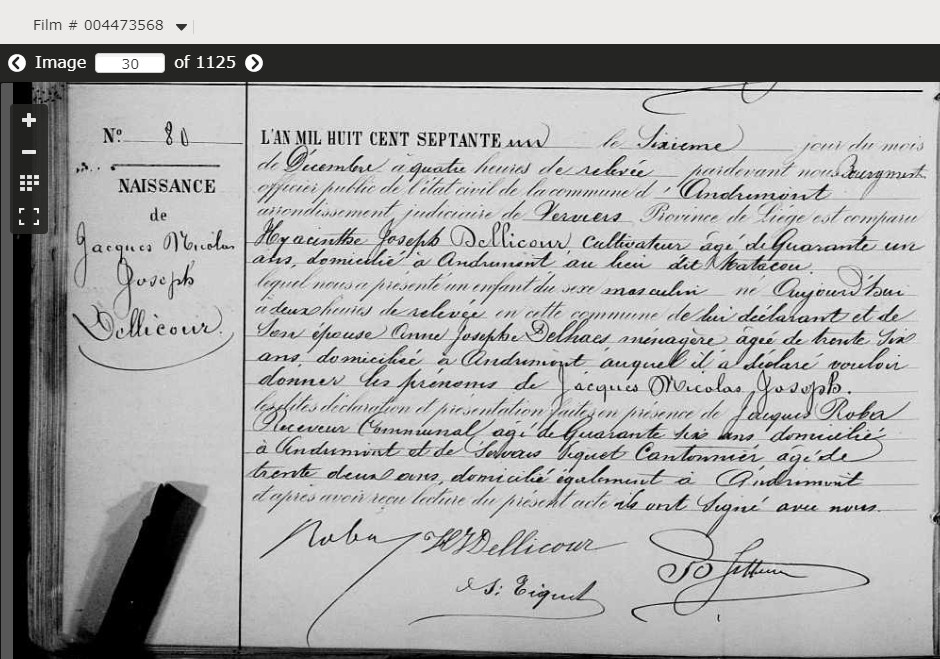 Film # 004473568
Image 30 of 1125
Nº 80
NAISSANCE
de
Jacques Nicolas
Joseph
Dellicour.
L'AN MIL HUIT CENT SEPTANTE un le Sixième jour du mois
de Décembre à quatre heures de relevée pardevant nous Bourgmestre
officier public de l'état civil de la commune d'Andrimont
arrondissement judiciaire de Verviers Province de Liège est comparu
Hyacinthe Joseph Dellicour cultivateur âgé de Quarante un
ans, domicilié à Andrimont au lieu dit
lequel nous a présenté un enfant du sexe masculin né Aujourd'hui
à deux heures de relevée en cette commune de lui déclarant et de
Son épouse Anne Josephe Delhaes ménagère âgée de trente Six
ans domiciliée à Andrimont auquel il a déclaré vouloir
donner les prénoms de Jacques Nicolas Joseph.
lesdites déclaration et présentation faites en présence de Jacques Rober
Receveur Communal âgé de Quarante six ans domicilié
à Andrimont et de Servais Cantonnier âgé de
trente deux ans, domicilié également à Andrimont
d'après avoir reçu lecture du présent acte ils ont Signé avec nous.
Rober HJDellicour